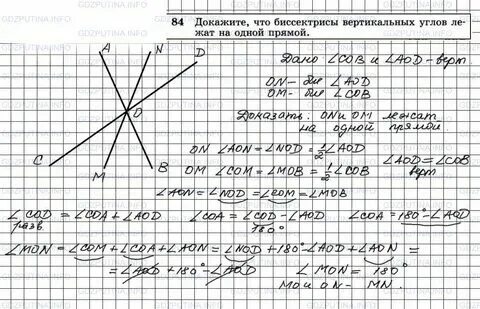 84 Докажите, что биссектрисы вертикальных углов ле-
жат на одной прямой.
A N D
O
C M B
Дано ∠COB и ∠AOD - верт
ON - бис ∠AOD
OM - бис ∠COB
Доказать: ON и OM лежат
на одной прямой
ON ∠AON = ∠NOD = 1/2 ∠AOD
OM ∠COM = ∠MOB = 1/2 ∠COB
∠AOD = ∠COB
верт
∠AON = ∠NOD = ∠COM = ∠MOB
∠COD = ∠COA + ∠AOD ∠COA = ∠COD - ∠AOD ∠COA = 180° - ∠AOD
разв. 180°
∠MON = ∠COM + ∠COA + ∠AON = ∠NOD + 180° - ∠AOD + ∠AON =
= ∠AOD + 180° - ∠AOD ∠MON = 180°
MO и ON - MN.